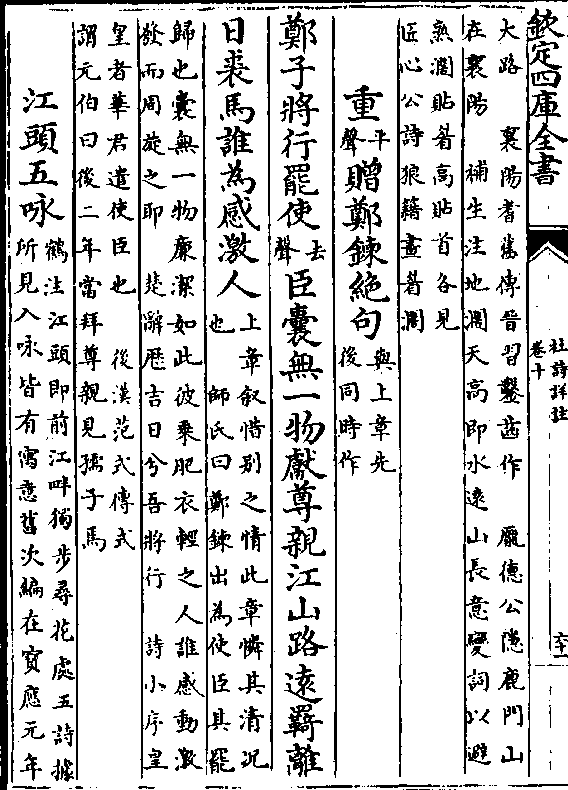 欽定四庫全書
杜詩詳註
卷十
大路　襄陽耆舊傳晉習鑿齒作　龐德公隱鹿門山
在襄陽　補生注地濶天高即水遠山長意變詞以避
熟濶貼著高貼首各見
匠心公詩狼籍畫著濶
重平聲贈鄭鍊絶句與上章先後同時作
鄭子將行罷使去聲臣囊無一物獻尊親江山路遠羇離
日裘馬誰為感激人上章叙惜别之情此章憐其清况
也　師氏曰鄭鍊出為使臣其罷
歸也囊無一物廉潔如此彼乗肥衣輕之人誰感動激
發而周旋之耶　楚辭歷吉日兮吾將行　詩小序皇
皇者華君遣使臣也　後漢范式傳式
謂元伯曰後二年當拜尊親見孺子焉
江頭五咏鶴注江頭即前江畔獨步尋花處五詩據
所見入咏皆有寓意舊次編在寳應元年